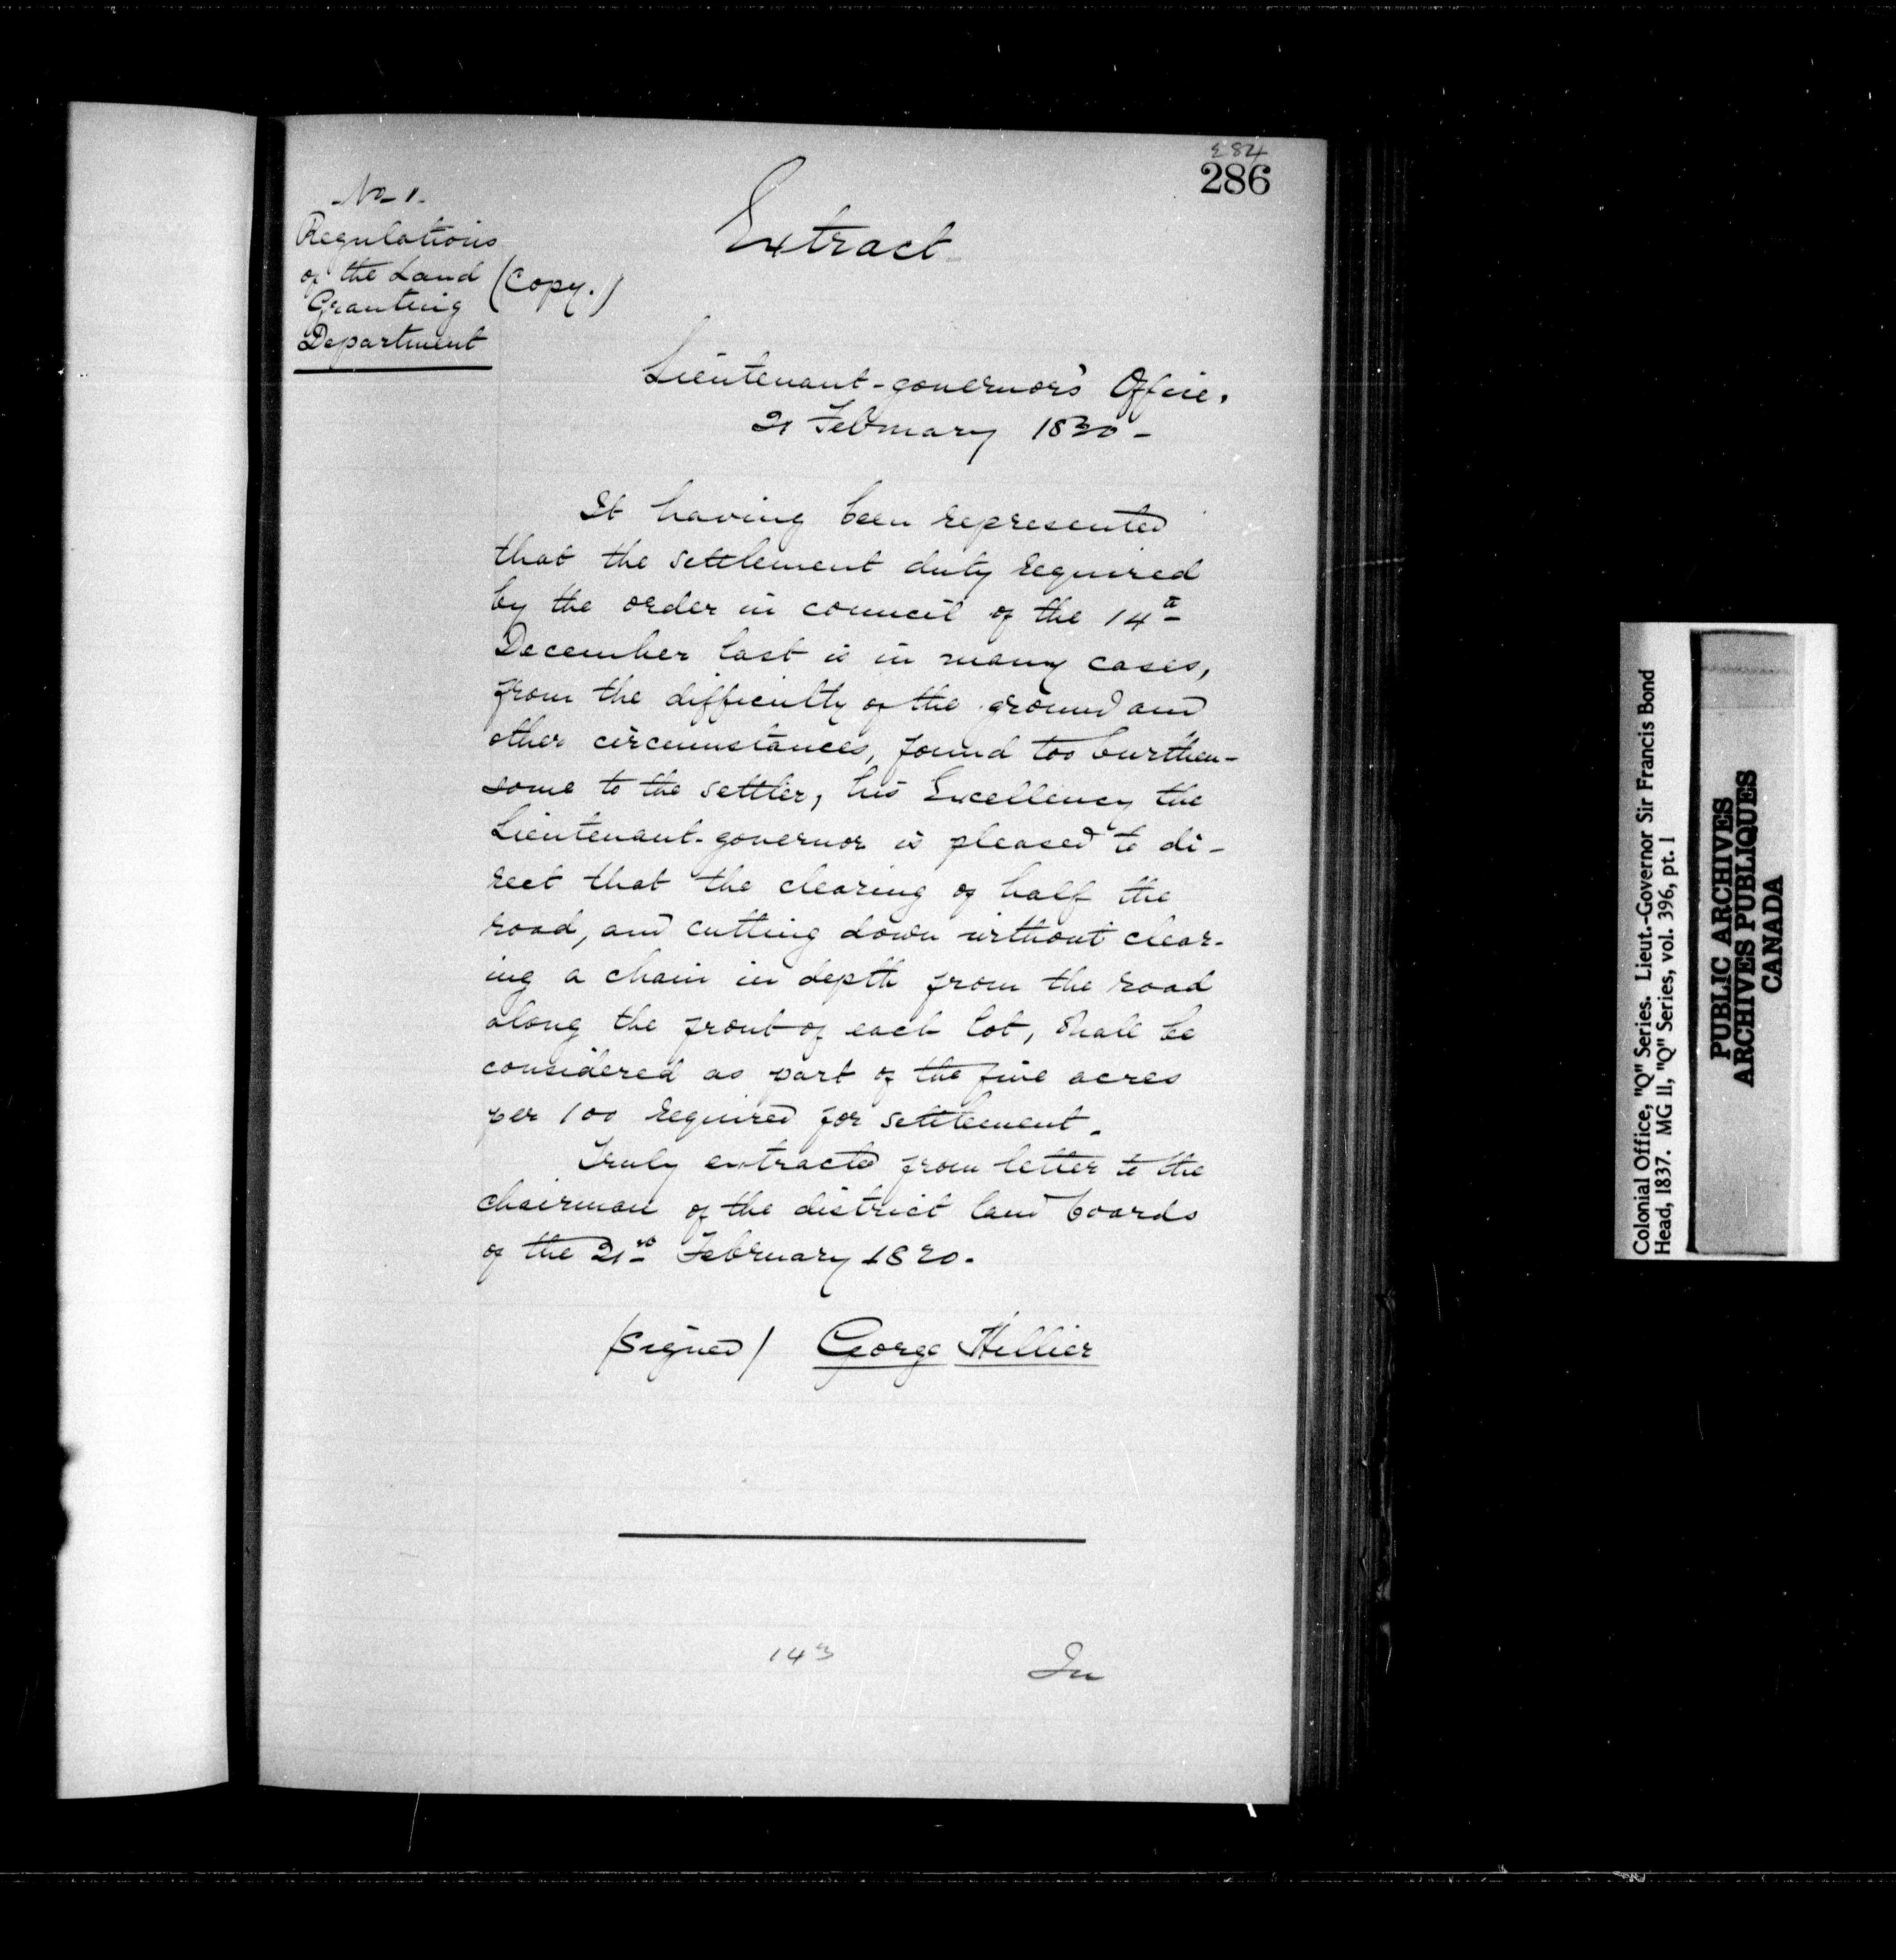 284
286
No 1.
Regulations
of the Land
Granting
Department
(Copy.)
Extract
Lieutenant-governor's Office.
21 February 1820 -
It having been represented
that the settlement duty required
by the order in council of the 14th
December last is in many cases,
from the difficulty of the ground and
other circumstances, found too burthen-
some to the settler, his Excellency the
Lieutenant-governor is pleased to di-
rect that the clearing of half the
road, and cutting down without clear-
ing a chain in depth from the road
along the front of each lot, shall be
considered as part of the five acres
per 100 required for settlement.
Truly extracted from letter to the
chairman of the district land boards
of the 21st February 1820.
(Signed) George Hillier
143
In
Colonial Office, "Q" Series. Lieut.-Governor Sir Francis Bond
Head, 1837. MG 11, "Q" Series, vol. 396, pt. 1
PUBLIC ARCHIVES
ARCHIVES PUBLIQUES
CANADA